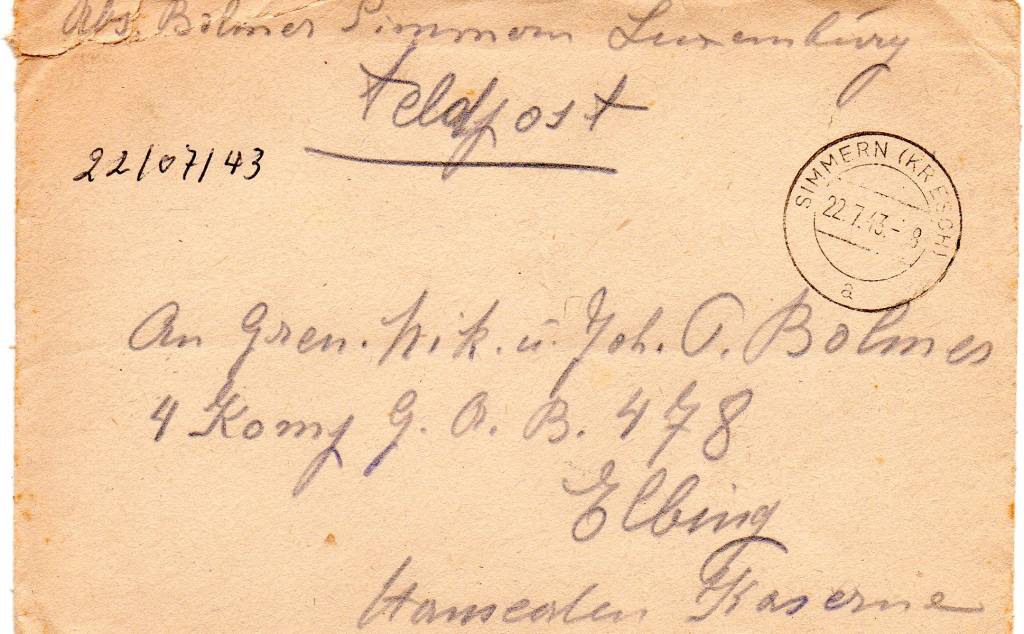 Abs. Bolmer Simmern Luxemburg
Feldpost
22/07/43
SIMMERN (KR ESCH)
22.7.43.- 8
a
An Gren. Nik. u. Joh. P. Bolmer
4 Komp G. A. B. 478
Elbing
Hansealen Kaserne